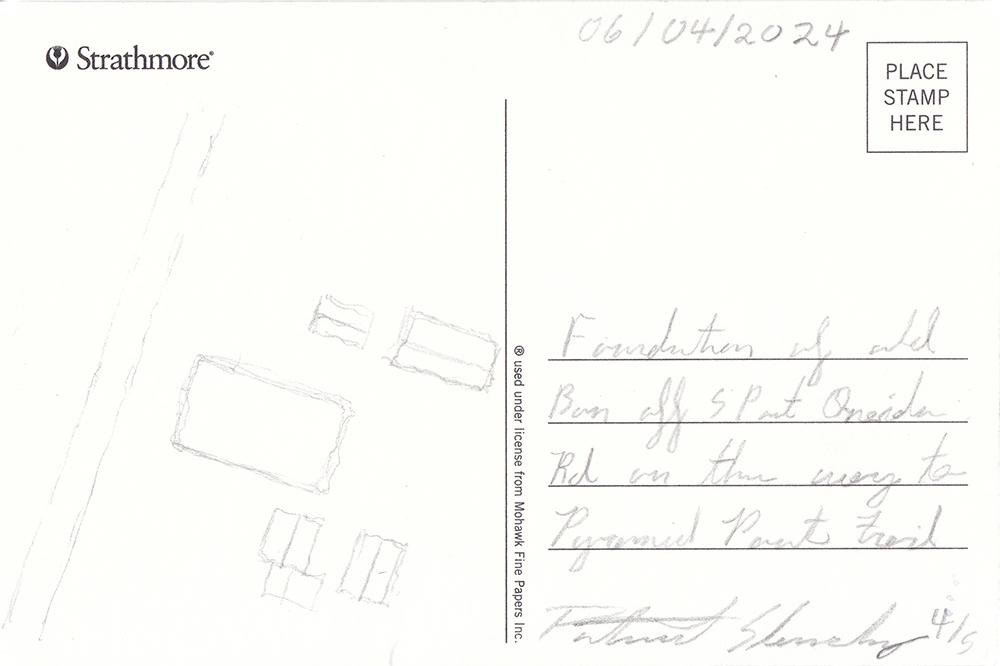 Strathmore®
06/04/2024
PLACE
STAMP
HERE
Foundation of old
Barn off S Port Oneida
Rd on the way to
Pyramid Point Trail
4/5
® used under license from Mohawk Fine Papers Inc.